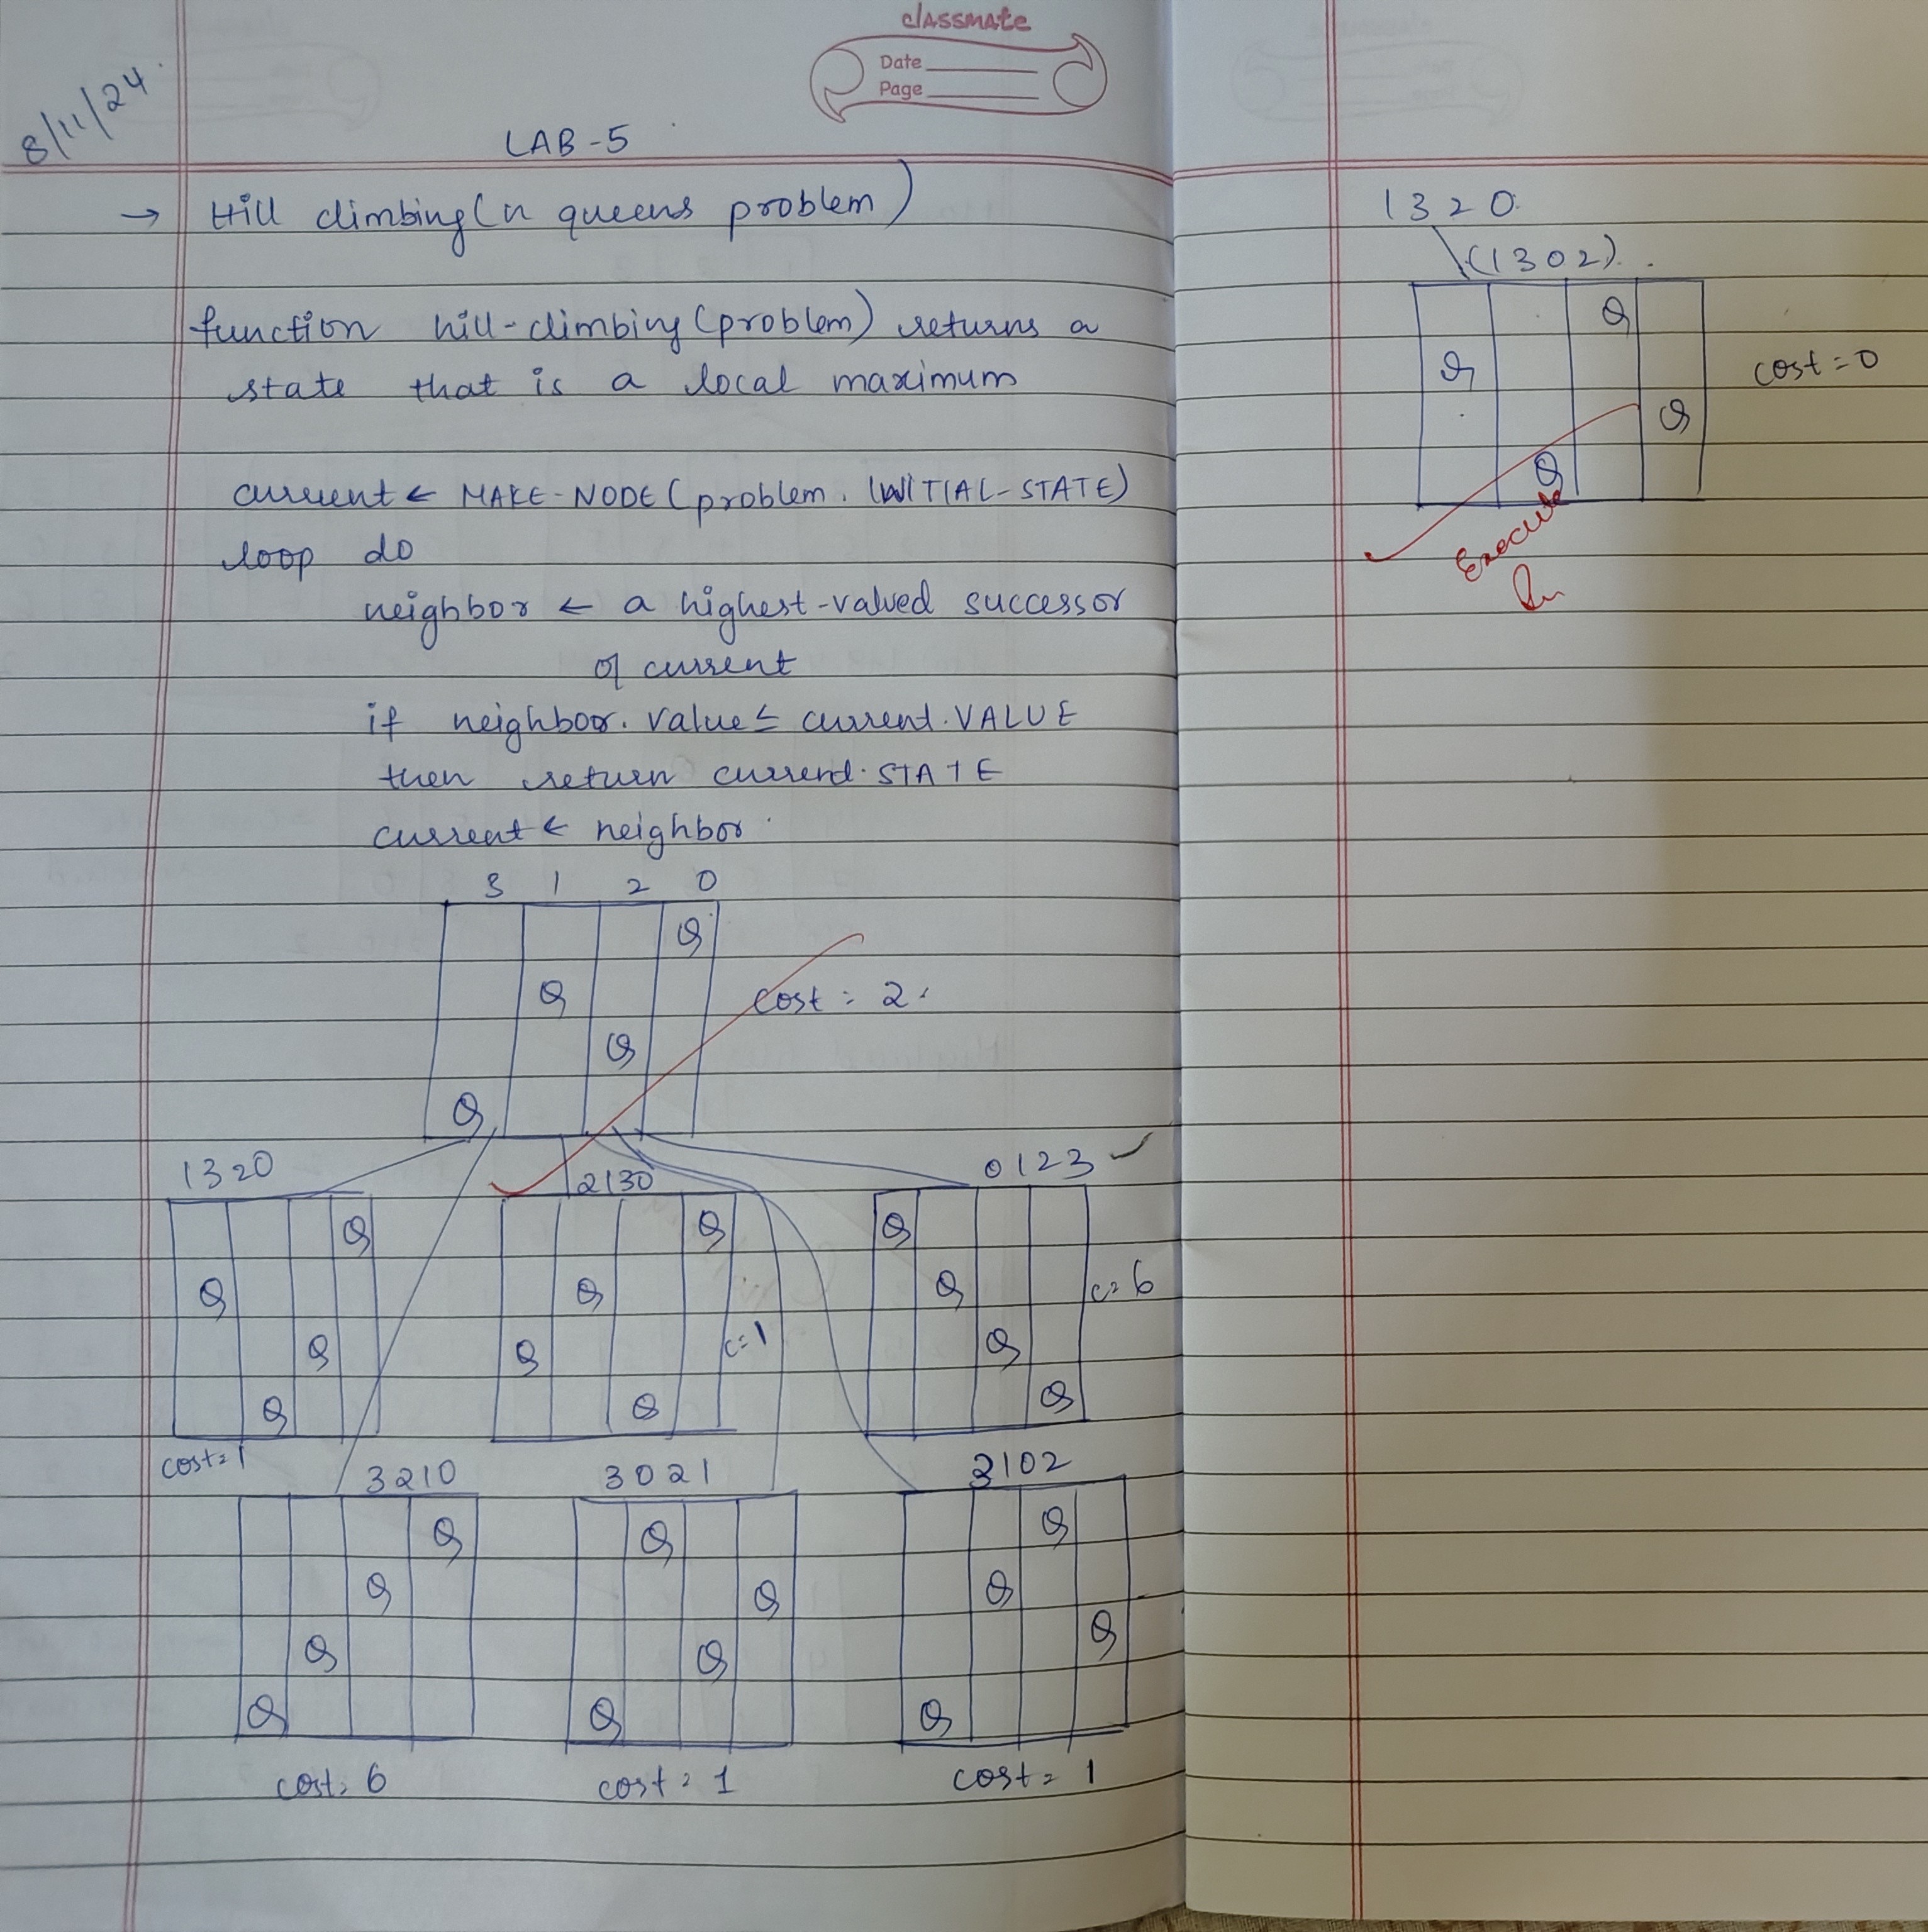 classmate
Date
Page
8/11/24
LAB-5
→ Hill climbing (n queens problem)
function hill-climbing (problem) returns a
state that is a local maximum
current ← MAKE-NODE (problem. INITIAL-STATE)
loop do
neighbor ← a highest-valued successor
of current
if neighbor. value ≤ current. VALUE
then return current. STATE
current ← neighbor.
3 1 2 0
Q
Q
cost = 2
Q
Q
1320
2130
0123 ✓
Q Q Q
Q Q Q c = 6
Q Q Q
c = 1
Q Q Q
cost = 1
3210 3021 3102
Q Q Q
Q Q Q
Q Q Q
Q Q Q
cost = 6 cost = 1 cost = 1
1320
(1302)
Q
Q cost = 0
Q
Q